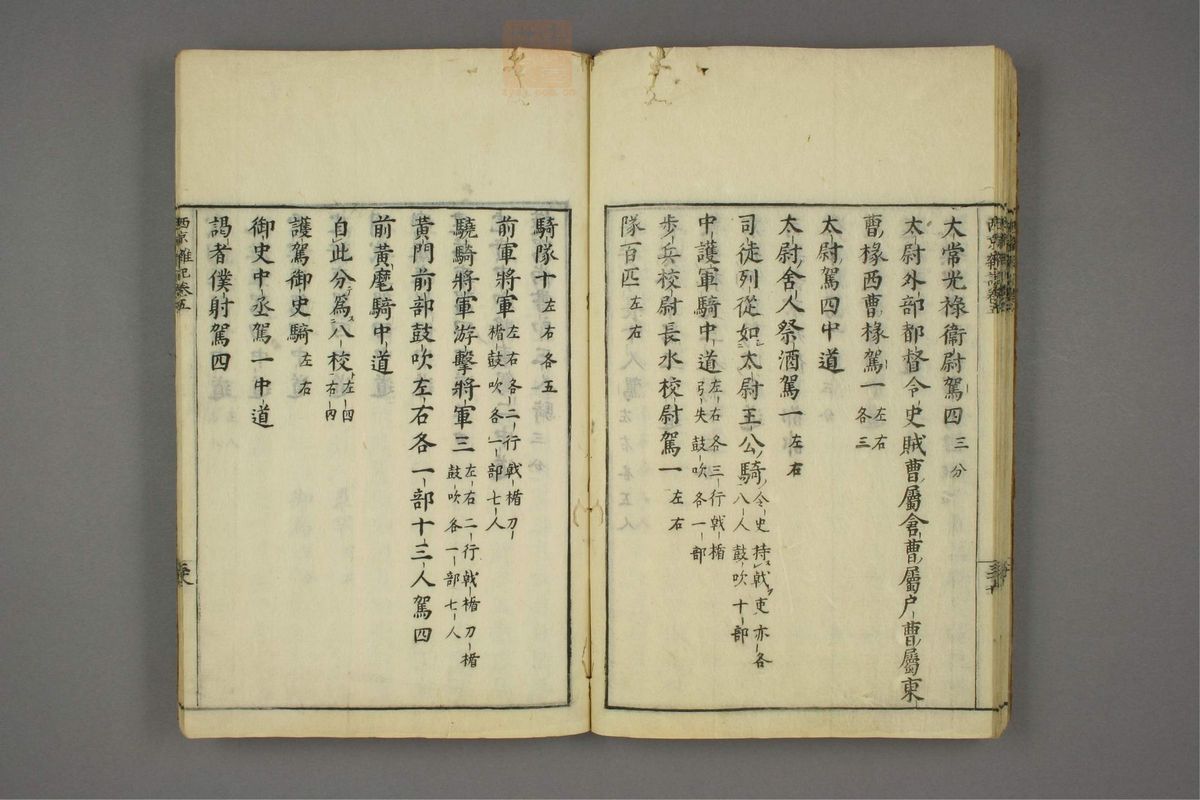 大常光祿衞尉駕四三分
太尉外部都督令史賊曹屬倉曹屬户曹屬東
曹掾西曹掾駕一左右各三
太尉駕四中道
太尉舍人祭酒駕一左右
司徒列從如太尉王公騎令史持戟吏亦各八人鼓吹十部
中護軍騎中道左右各三行戟楯弓矢鼓吹各一部
歩兵校尉長水校尉駕一左右
隊百匹左右
騎隊十左右各五
前軍將軍左右各二行戟楯刀楯鼓吹各一部七人
驍騎將軍游擊將軍三左右二行戟楯刀楯鼓吹各一部七人
黃門前部鼓吹左右各一部十三人駕四
前黃麾騎中道
自此分爲八校左四右四
護駕御史騎左右
御史中丞駕一中道
謁者僕射駕四
西京雜記卷五